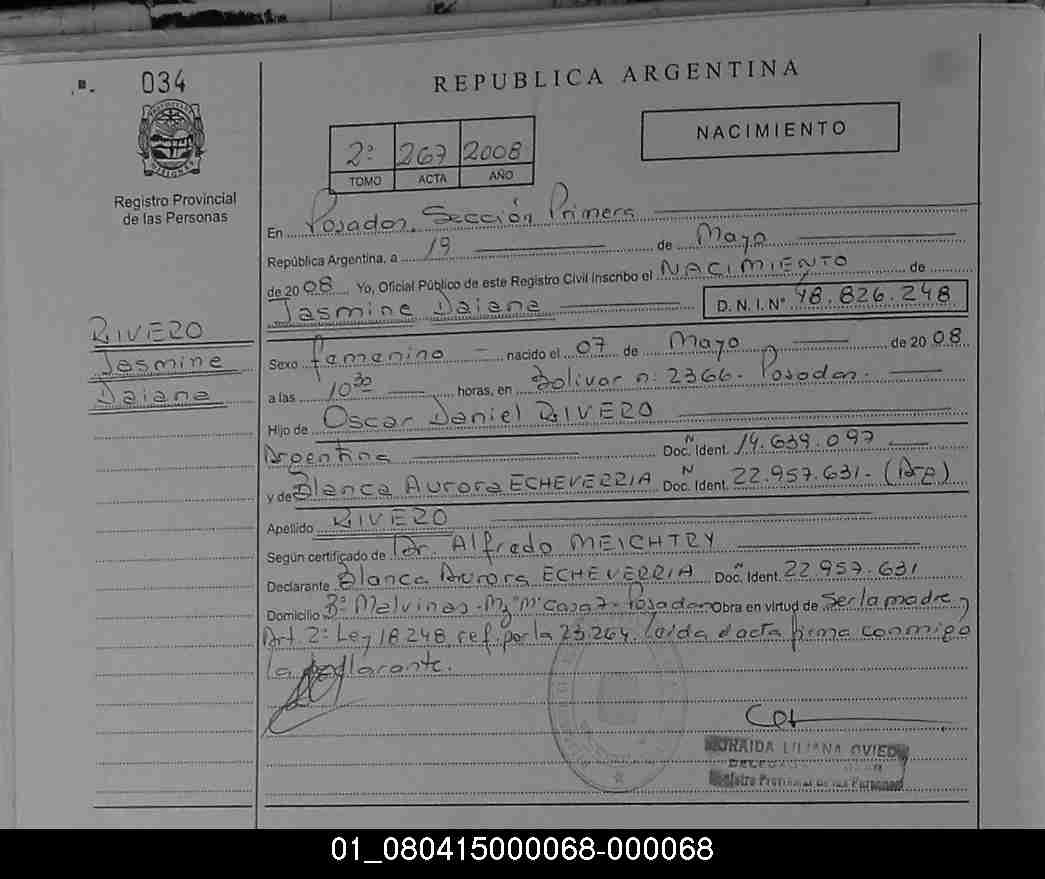 034
REPUBLICA ARGENTINA
NACIMIENTO
2º 267 2008
TOMO ACTA AÑO
Registro Provincial
de las Personas
En Posadas, Sección Primera
República Argentina, a 19 de Mayo
de 2008 Yo, Oficial Público de este Registro Civil Inscribo el NACIMIENTO de
Jasmine Daiana D.N.I.Nº 48.826.248
RIVERO
Jasmine
Daiana
Sexo femenino nacido el 07 de Mayo de 2008
a las 10 30 horas, en Bolivar nº 2366 - Posadas.
Hijo de Oscar Daniel RIVERO
Argentina Doc. Ident. N 14.639.097
y de Blanca Aurora ECHEVERRIA Doc. Ident. N 22.957.631. (Arg)
Apellido RIVERO
Según certificado de Dr. Alfredo MEICHTRY
Declarante Blanca Aurora ECHEVERRIA Doc. Ident. N 22.957.631
Domicilio Bº Malvinas - Mz "M" Casa 7 - Posadas Obra en virtud de Ser la madre y
Art. 2º Ley 18.248, ref. por la 23.264. Leída el acta firma conmigo
la declarante.
LILIANA OVIEDO
Registro Provincial de las Personas
01_080415000068-000068